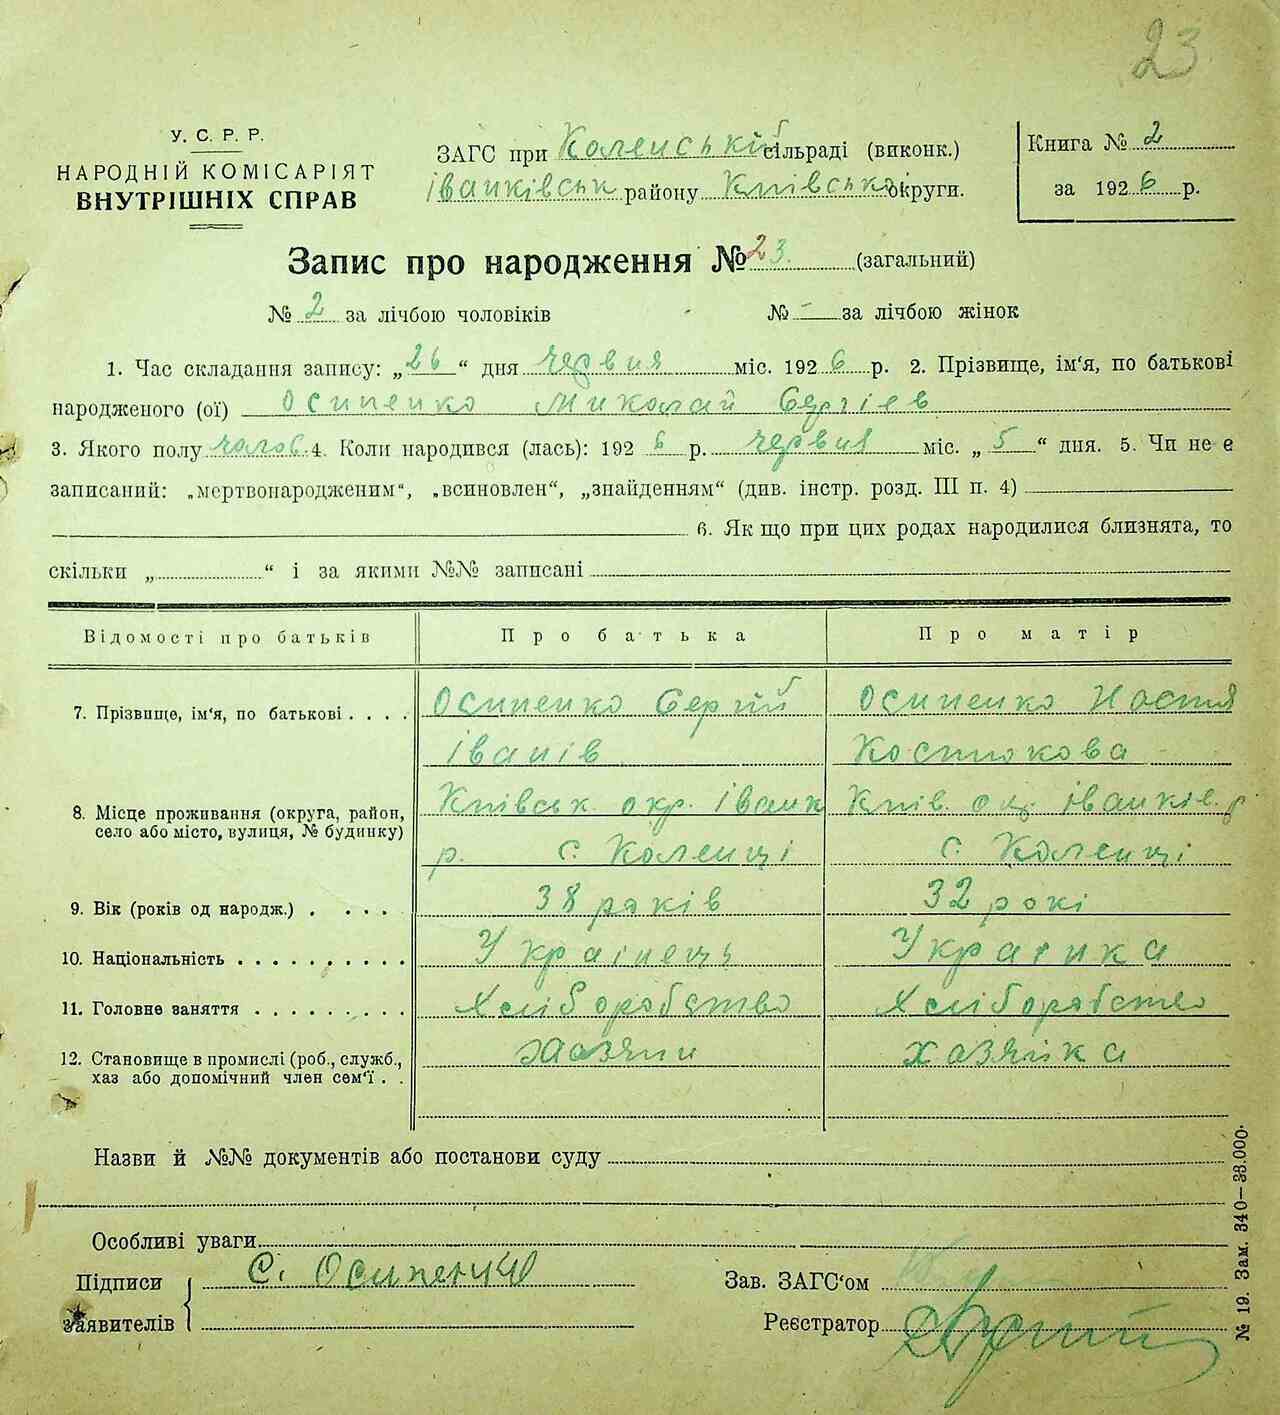 23
У. С. Р. Р.
НАРОДНІЙ КОМІСАРІЯТ
ВНУТРІШНІХ СПРАВ
ЗАГС при Каленській сільраді (виконк.)
іванківськ району Київсько округи.
Книга № 2
за 1926 р.
Запис про народження № 23. (загальний)
№ 2 за лічбою чоловіків № - за лічбою жінок
1. Час складання запису: „26“ дня червня міс. 1926 р. 2. Прізвище, ім‘я, по батькові
народженого (ої) Осипенко Миколай Сергіев
3. Якого полу чолов. 4. Коли народився (лась): 1926 р. червня міс. „5“ дня. 5. Чи не є
записаний: „мертвонародженим“, „всиновлен“, „знайденням“ (див. інстр. розд. III п. 4)
6. Як що при цих родах народилися близнята, то
скільки „ “ і за якими №№ записані
Відомості про батьків Про батька Про матір
7. Прізвище, ім‘я, по батькові . . . . Осипенко Сергій Осипенко Настя
іванів Костюкова
8. Місце проживання (округа, район, Київськ. окр. іванк Київ. окр. іванків. р
село або місто, вулиця, № будинку) р. с. Коленці с. Коленці
9. Вік (років од народж.) . . . . 38 років 32 рокі
10. Національність . . . . . . . . . . Українець Украінка
11. Головне заняття . . . . . . . . . Хліборобство Хліборобство
12. Становище в промислі (роб., служб., хазяйка
хаз або допомічний член сем‘ї . .
Назви й №№ документів або постанови суду
Особливі уваги
Підписи С. Осипенко Зав. ЗАГС‘ом
заявителів Реєстратор
№ 19. Зам. 340—38.000.